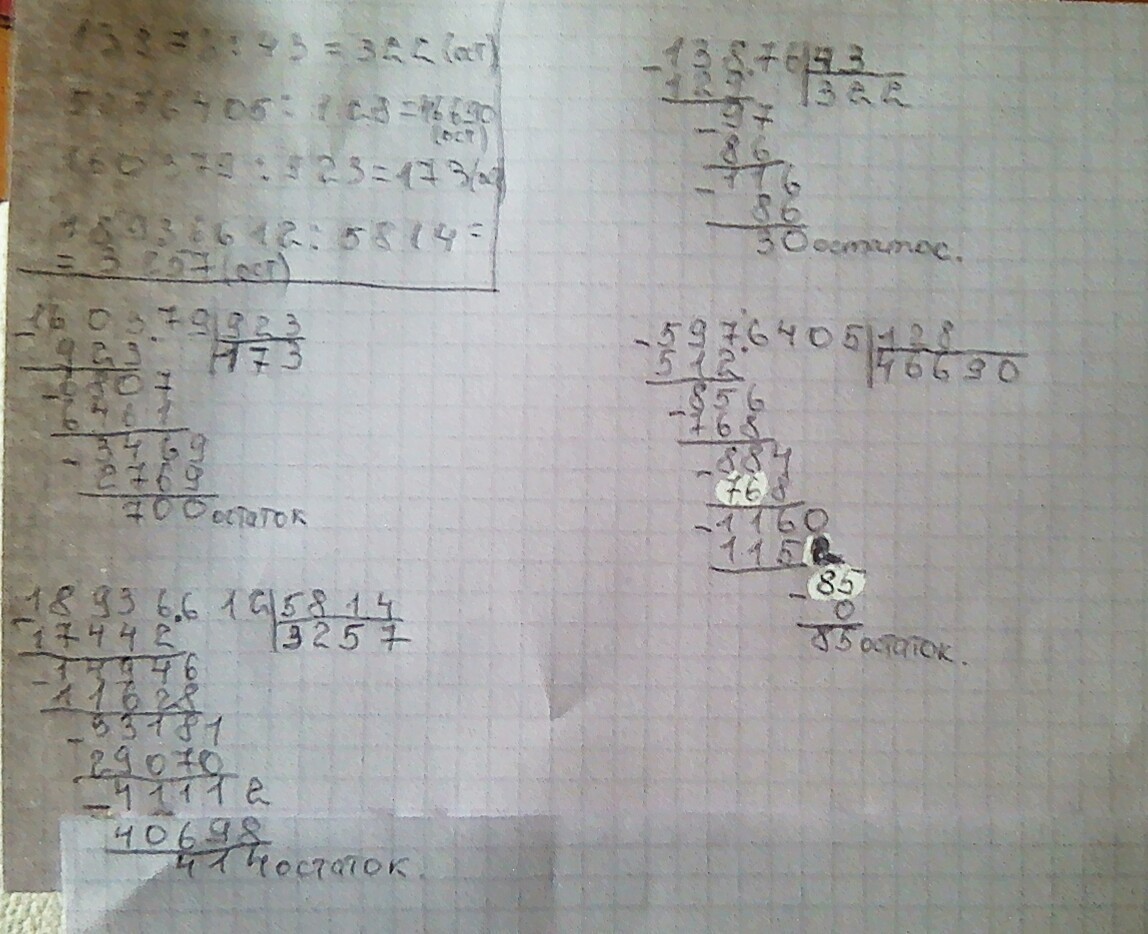 13873:43=322(ост)
5976405:128=46690
(ост)
160379:923=173(ос
18936612:5814=
=3257(ост)
-138.76|43
129.|322
-97
86
-116
86
30остаток.
-1603.79|923
923.|173
-6807
6461
-3469
2769
700остаток
-597.6405|128
512.|46690
-856
768
-884
768
-1160
1152
-85
0
85остаток.
-18936.612|5814
17442|3257
-14946
11628
-33181
29070
-41112
40698
414остаток.